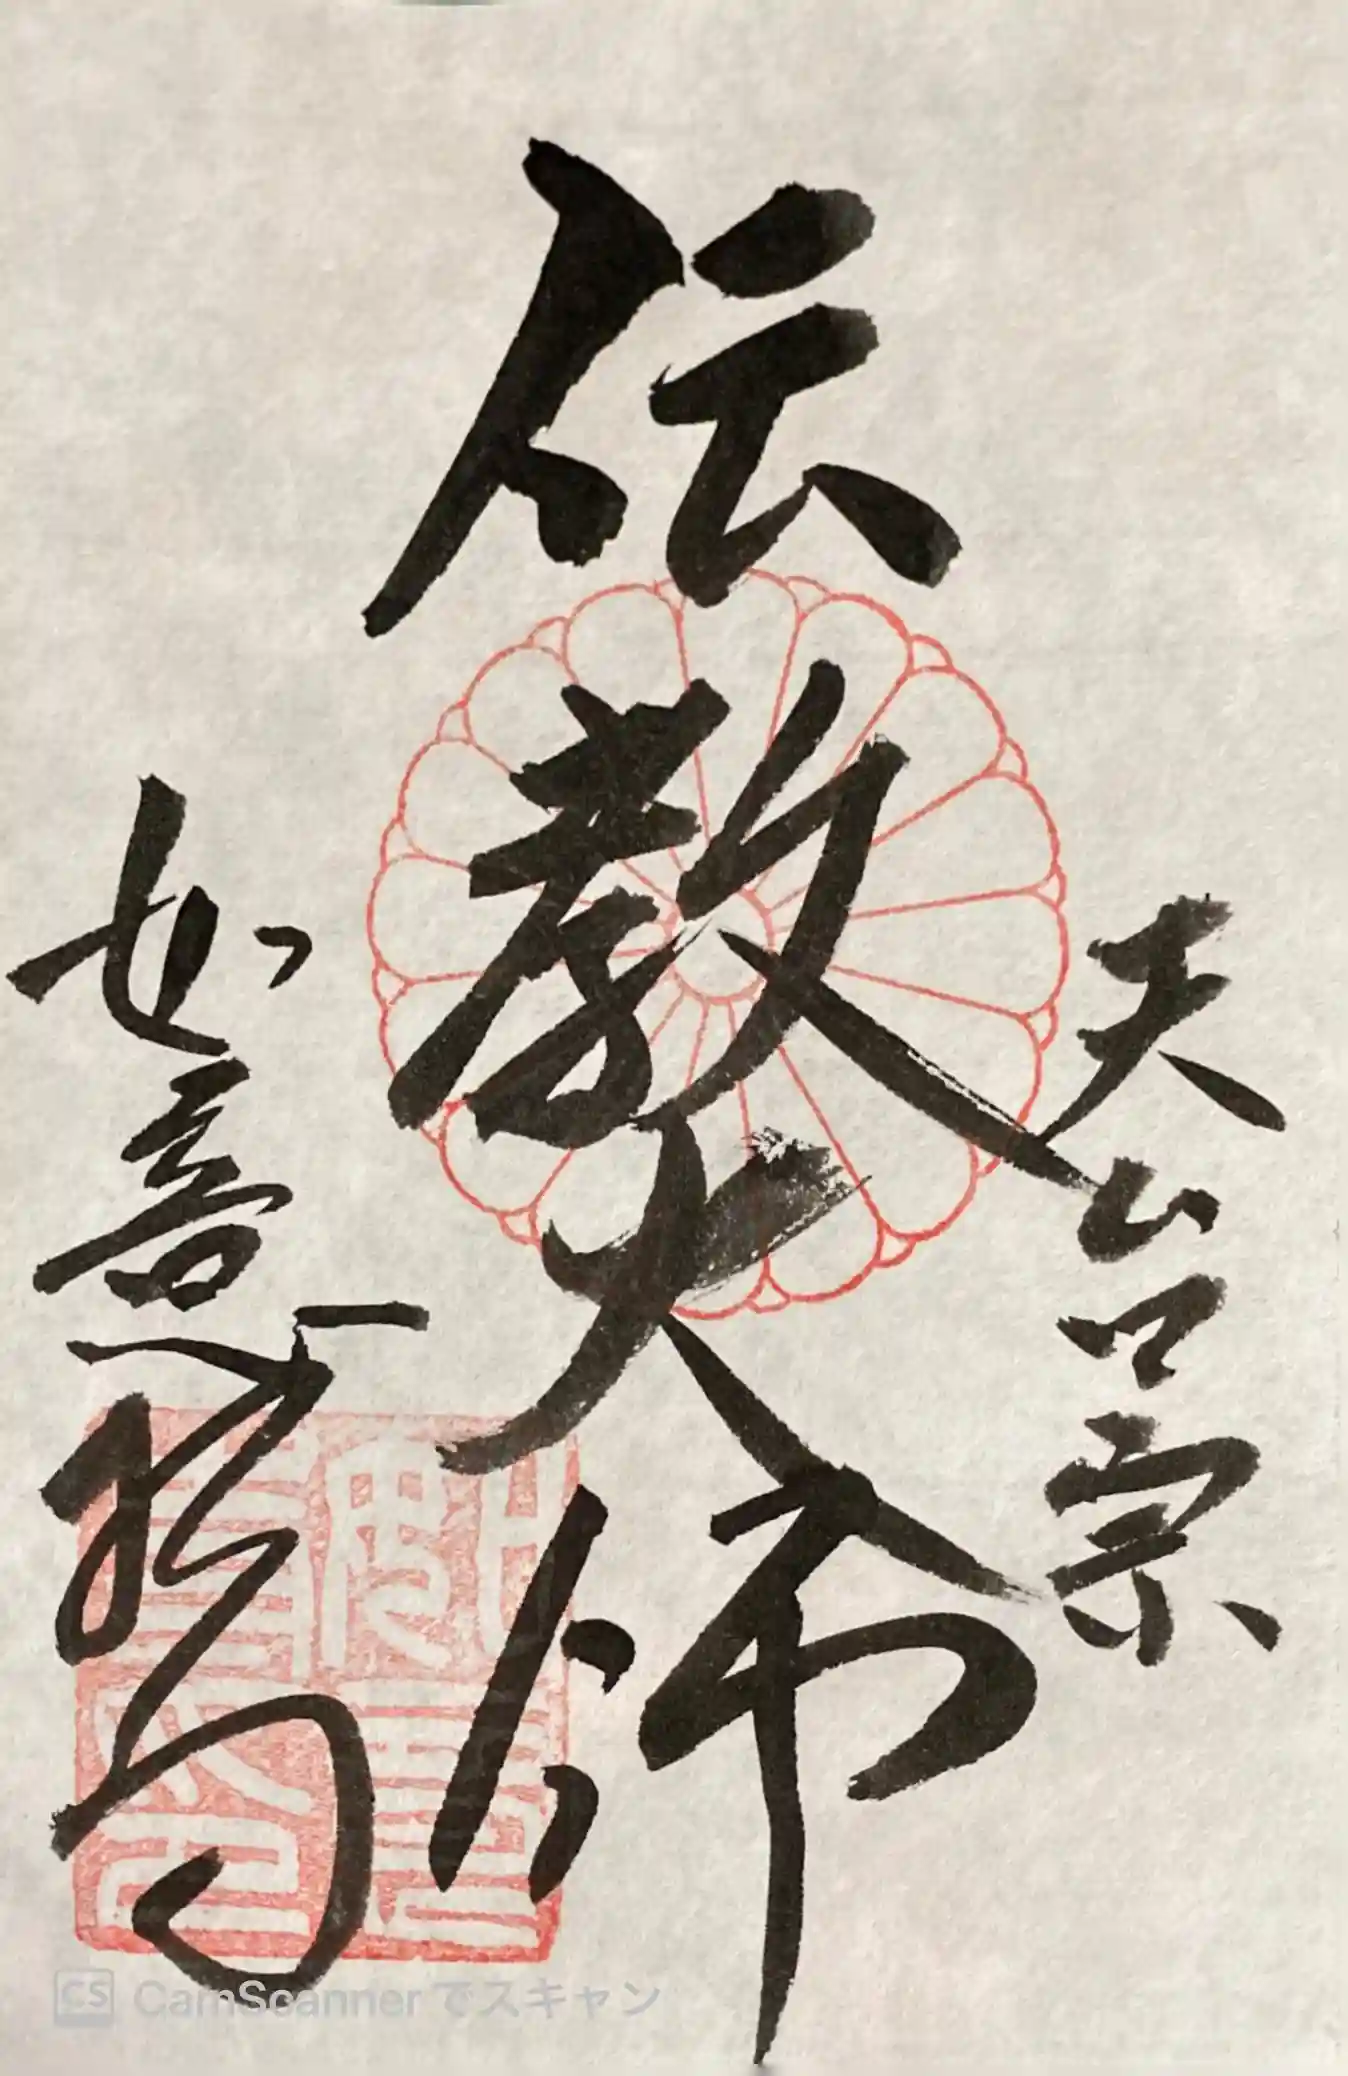 天台宗
伝教大師
如意輪寺
CS CamScanner でスキャン